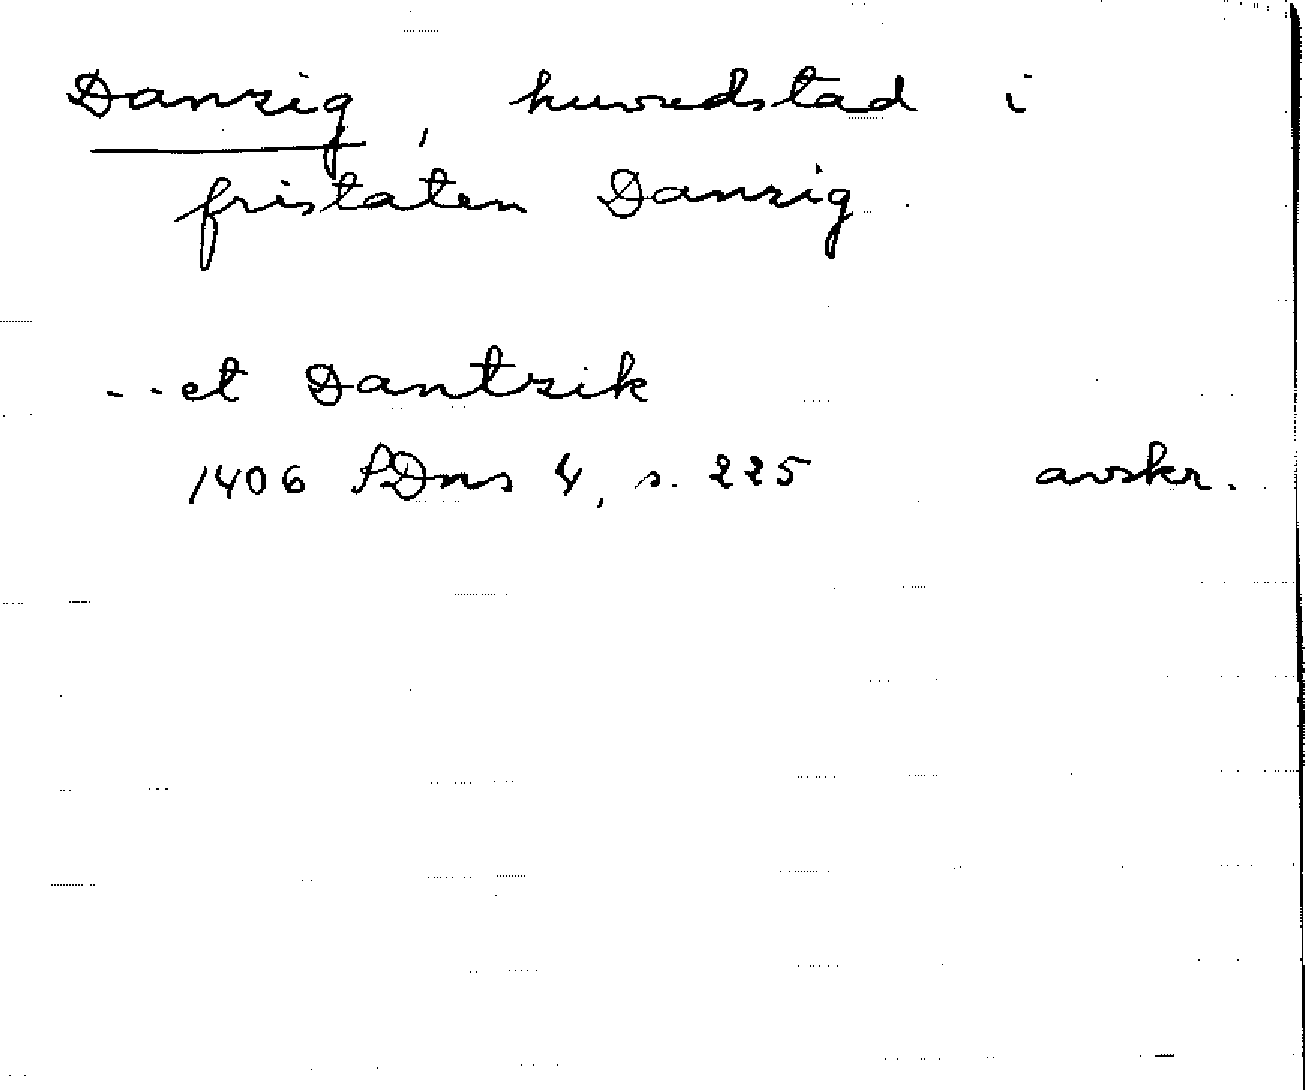 Danzig, huvudstad i
fristaten Danzig.
...et Dantzik
1406 SDns 4, s. 225 avskr.